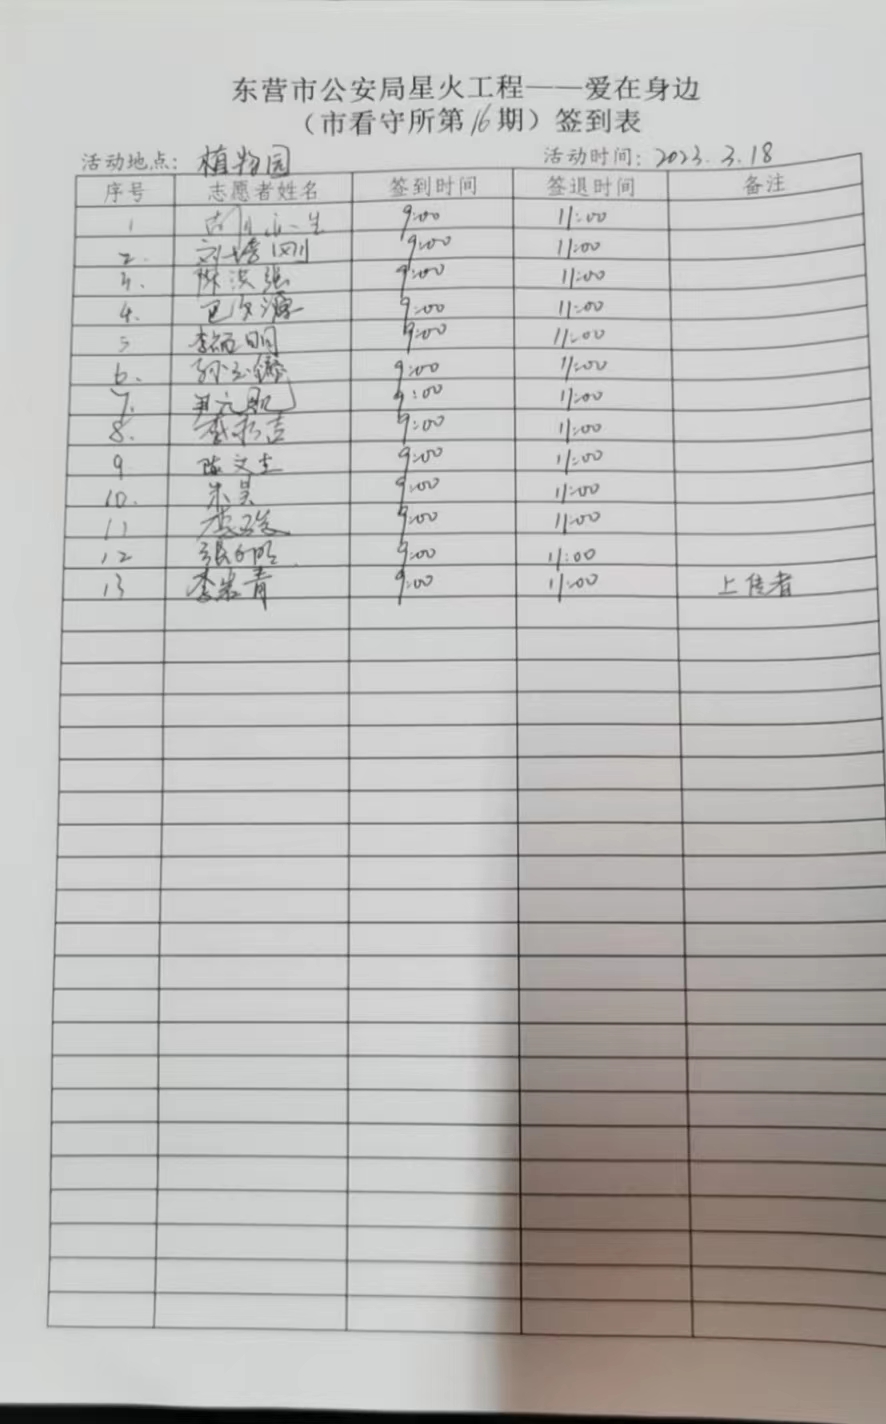 东营市公安局星火工程——爱在身边
（市看守所第16期）签到表
活动地点：植物园 活动时间：2023.3.18
序号 志愿者姓名 签到时间 签退时间 备注
1 9:00 11:00
2. 刘培刚 9:00 11:00
3. 陈洪强 9:00 11:00
4. 9:00 11:00
5 李炳明 9:00 11:00
6. 9:00 11:00
7. 9:00 11:00
8. 9:00 11:00
9 陈文生 9:00 11:00
10. 朱昊 9:00 11:00
11 9:00 11:00
12 9:00 11:00
13 李岩青 9:00 11:00 上传者